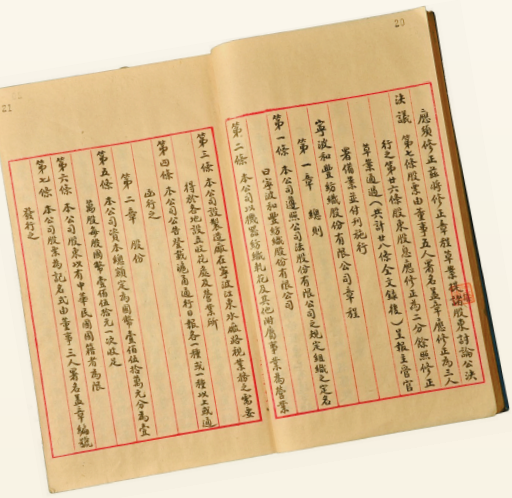 20
應須修正茲將修正章程草案提請股東討論公決
決議 第七條股票由董事五人署名蓋章應修正為三人
行之第廿六條股東股息應修正為二分餘照修正
草案通過(共計廿八條全文錄後)呈報主管官
署備案並付刊施行
寧波和豐紡織股份有限公司章程
第一章 總則
第一條 本公司遵照公司法股份有限公司之規定組織之定名
曰寧波和豐紡織股份有限公司
第二條 本公司以機器紡織軋花及其他附屬事業為營業
21
第三條 本公司設製造廠在寧波江東冰廠路視業務之需要
得於各地設立收花處及營業所
第四條 本公司公告登載滬甬通行日報各一種或一種以上或通
函行之
第二章 股份
第五條 本公司資本總額定為國幣壹佰伍拾萬元分為壹
萬股每股國幣壹佰伍拾元一次收足
第六條 本公司股東以有中華民國國籍者為限
第七條 本公司股票為記名式由董事三人署名蓋章編號
發行之